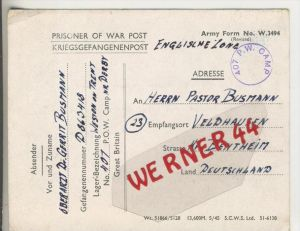 PRISONER OF WAR POST
KRIEGSGEFANGENENPOST
Army Form No. W.3494
(Revised)
ENGLISCHE ZONE
407 P.W. CAMP
ADRESSE
An HERRN PASTOR BUSMANN
(23) Empfangsort VELDHAUSEN
BENTHEIM
Land DEUTSCHLAND
Absender
Vor und Zuname
OBERARZT Dr. GERRIT BUSMANN
Gefangenennummer
Lager-Bezeichnung WESTON on TRENT
No. 407 P.O.W. Camp NR DERBY
Great Britain
WERNER 44
Wt. 51866/5128 13,600M. 5/45 S.C.W.S. Ltd. 51-6138